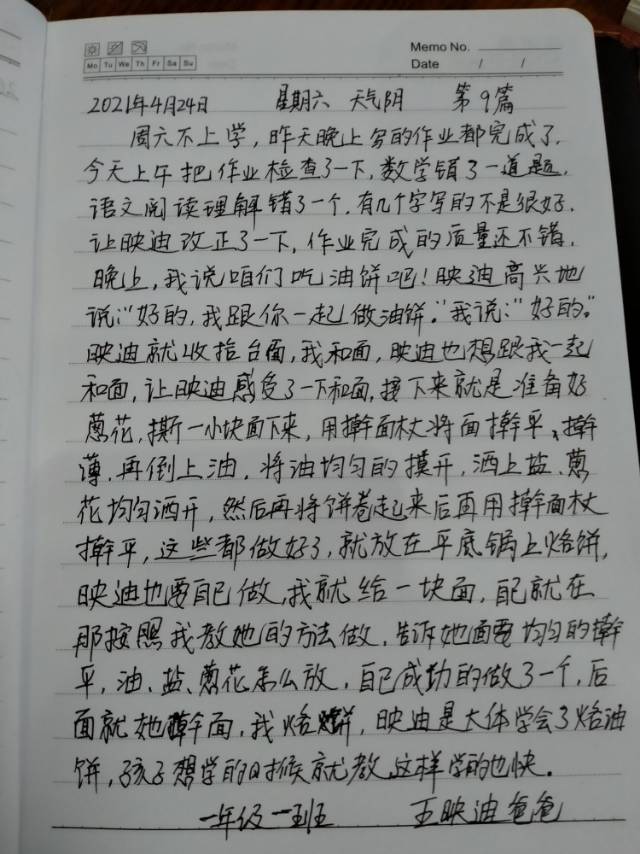 Memo No.
Mo Tu We Th Fr Sa Su
Date / /
2021年4月24日 星期六 天气阴 第9篇
周六不上学，昨天晚上多的作业都完成了.
今天上午把作业检查了一下,数学错了一道题,
语文阅读理解错了一个.有几个字写的不是很好.
让映迪改正了一下,作业完成的质量还不错,
晚上,我说咱们吃油饼吧!映迪高兴地
说:"好的,我跟你一起做油饼."我说:"好的."
映迪就收拾台面,我和面,映迪也想跟我一起
和面,让映迪感受了一下和面,接下来就是准备好
葱花,撕一小块面下来,用擀面杖将面擀平、擀
薄,再倒上油,将油均匀的摸开,洒上盐、葱
花均匀洒开,然后再将饼卷起来后再用擀面杖
擀平,这些都做好了,就放在平底锅上烙饼,
映迪也要自己做,我就给一块面,自己就在
那按照我教她的方法做,告诉她面要均匀的擀
平,油、盐、葱花怎么放,自己成功的做了一个,后
面就她擀面,我烙饼,映迪是大体学会了烙油
饼,孩子想学的时候就教,这样学的也快。
一年级一班 王映迪爸爸